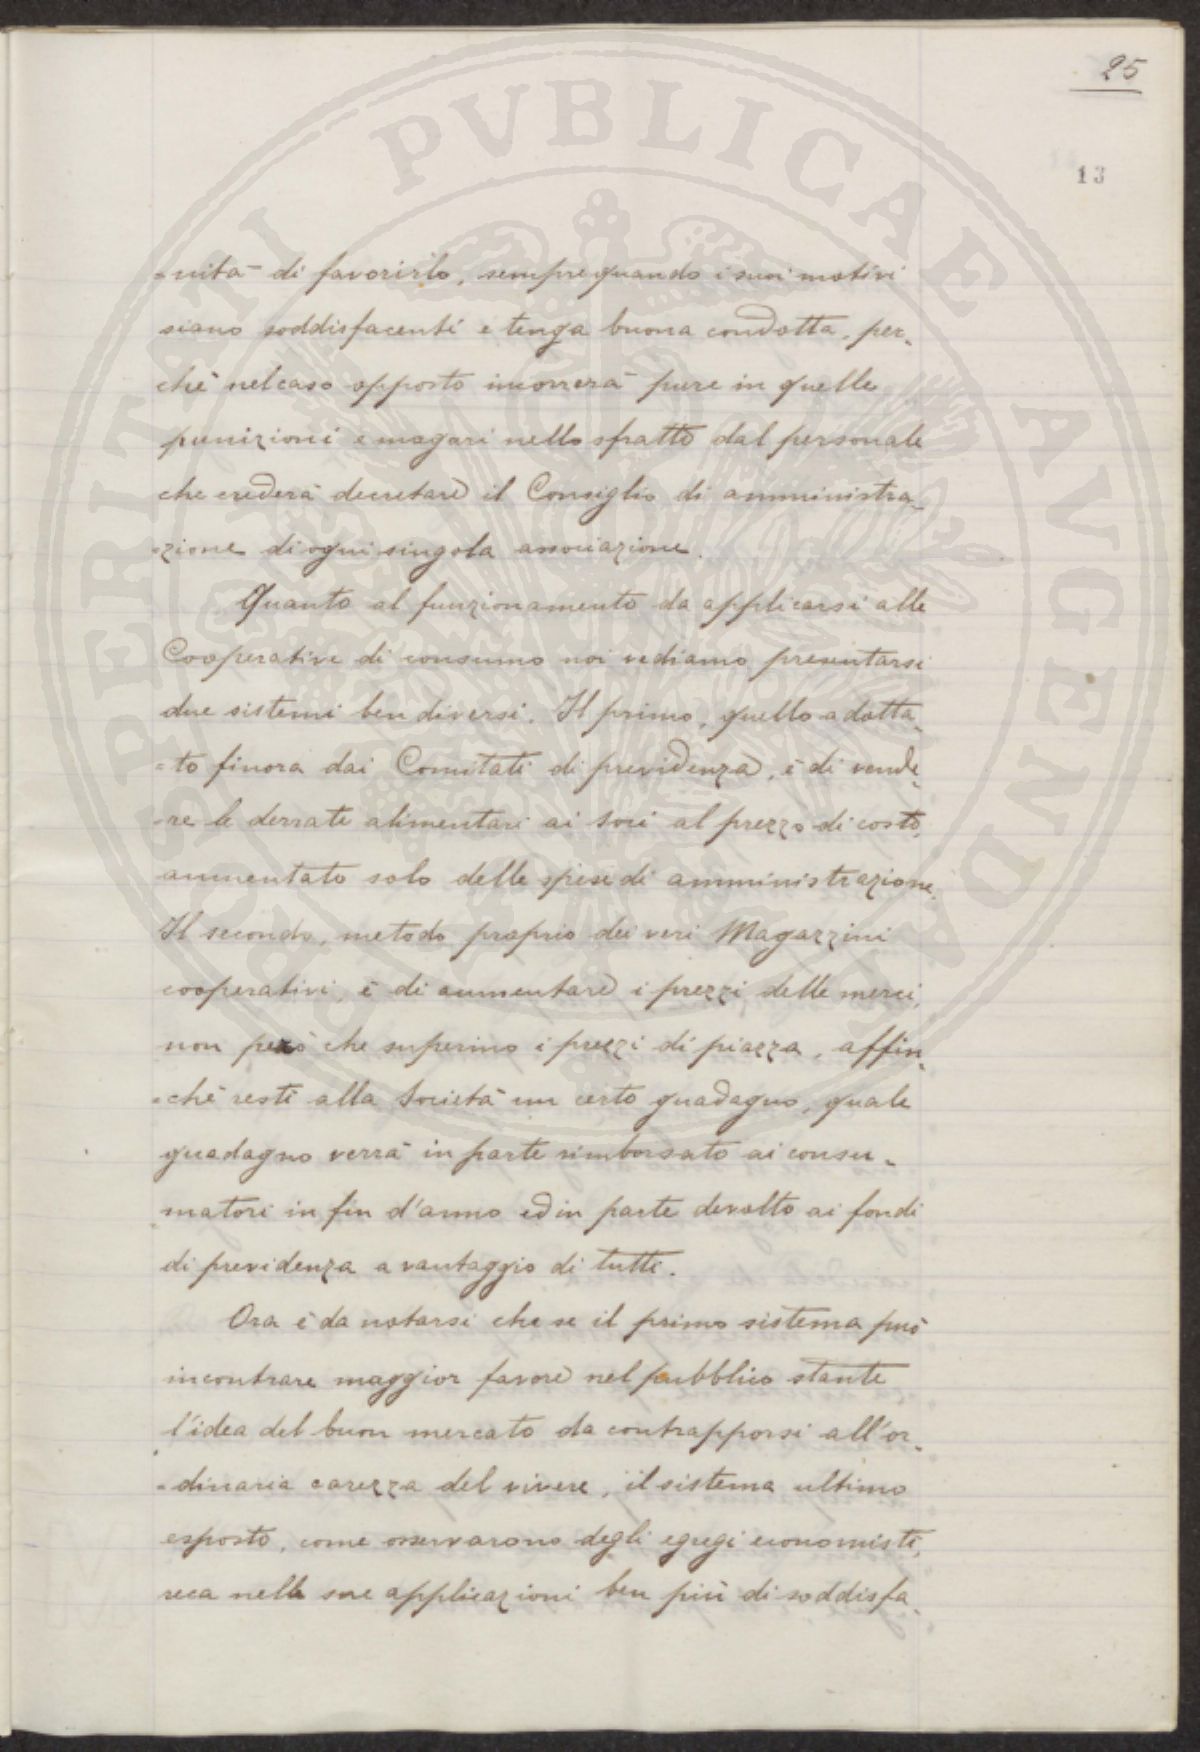 25
13
PROSPERITATI PVBLICAE AVGENDAE
-nità di favorirlo, semprequando i suoi motivi
siano soddisfacenti e tenga buona condotta, per-
chè nel caso opposto incorrerà pure in quelle
punizioni e magari nello sfratto dal personale
che crederà decretare il Consiglio di amministra-
-zione di ogni singola associazione.
Quanto al funzionamento da applicarsi alle
Cooperative di consumo noi vediamo presentarsi
due sistemi ben diversi. Il primo, quello adotta-
-to finora dai Comitati di previdenza, è di vende-
-re le derrate alimentari ai Soci al prezzo di costo,
aumentato solo delle spese di amministrazione.
Il secondo, metodo proprio dei veri Magazzini
cooperativi, è di aumentare i prezzi delle merci,
non però che superino i prezzi di piazza, affin-
-chè resti alla Società un certo guadagno, quale
guadagno verrà in parte rimborsato ai consu-
matori in fin d'anno ed in parte devolto ai fondi
di previdenza a vantaggio di tutti.
Ora è da notarsi che se il primo sistema può
incontrare maggior favore nel pubblico stante
l'idea del buon mercato da contrapporsi all'or-
-dinaria carezza del vivere, il sistema ultimo
esposto, come osservarono degli egregi economisti,
reca nelle sue applicazioni ben più di soddisfa-